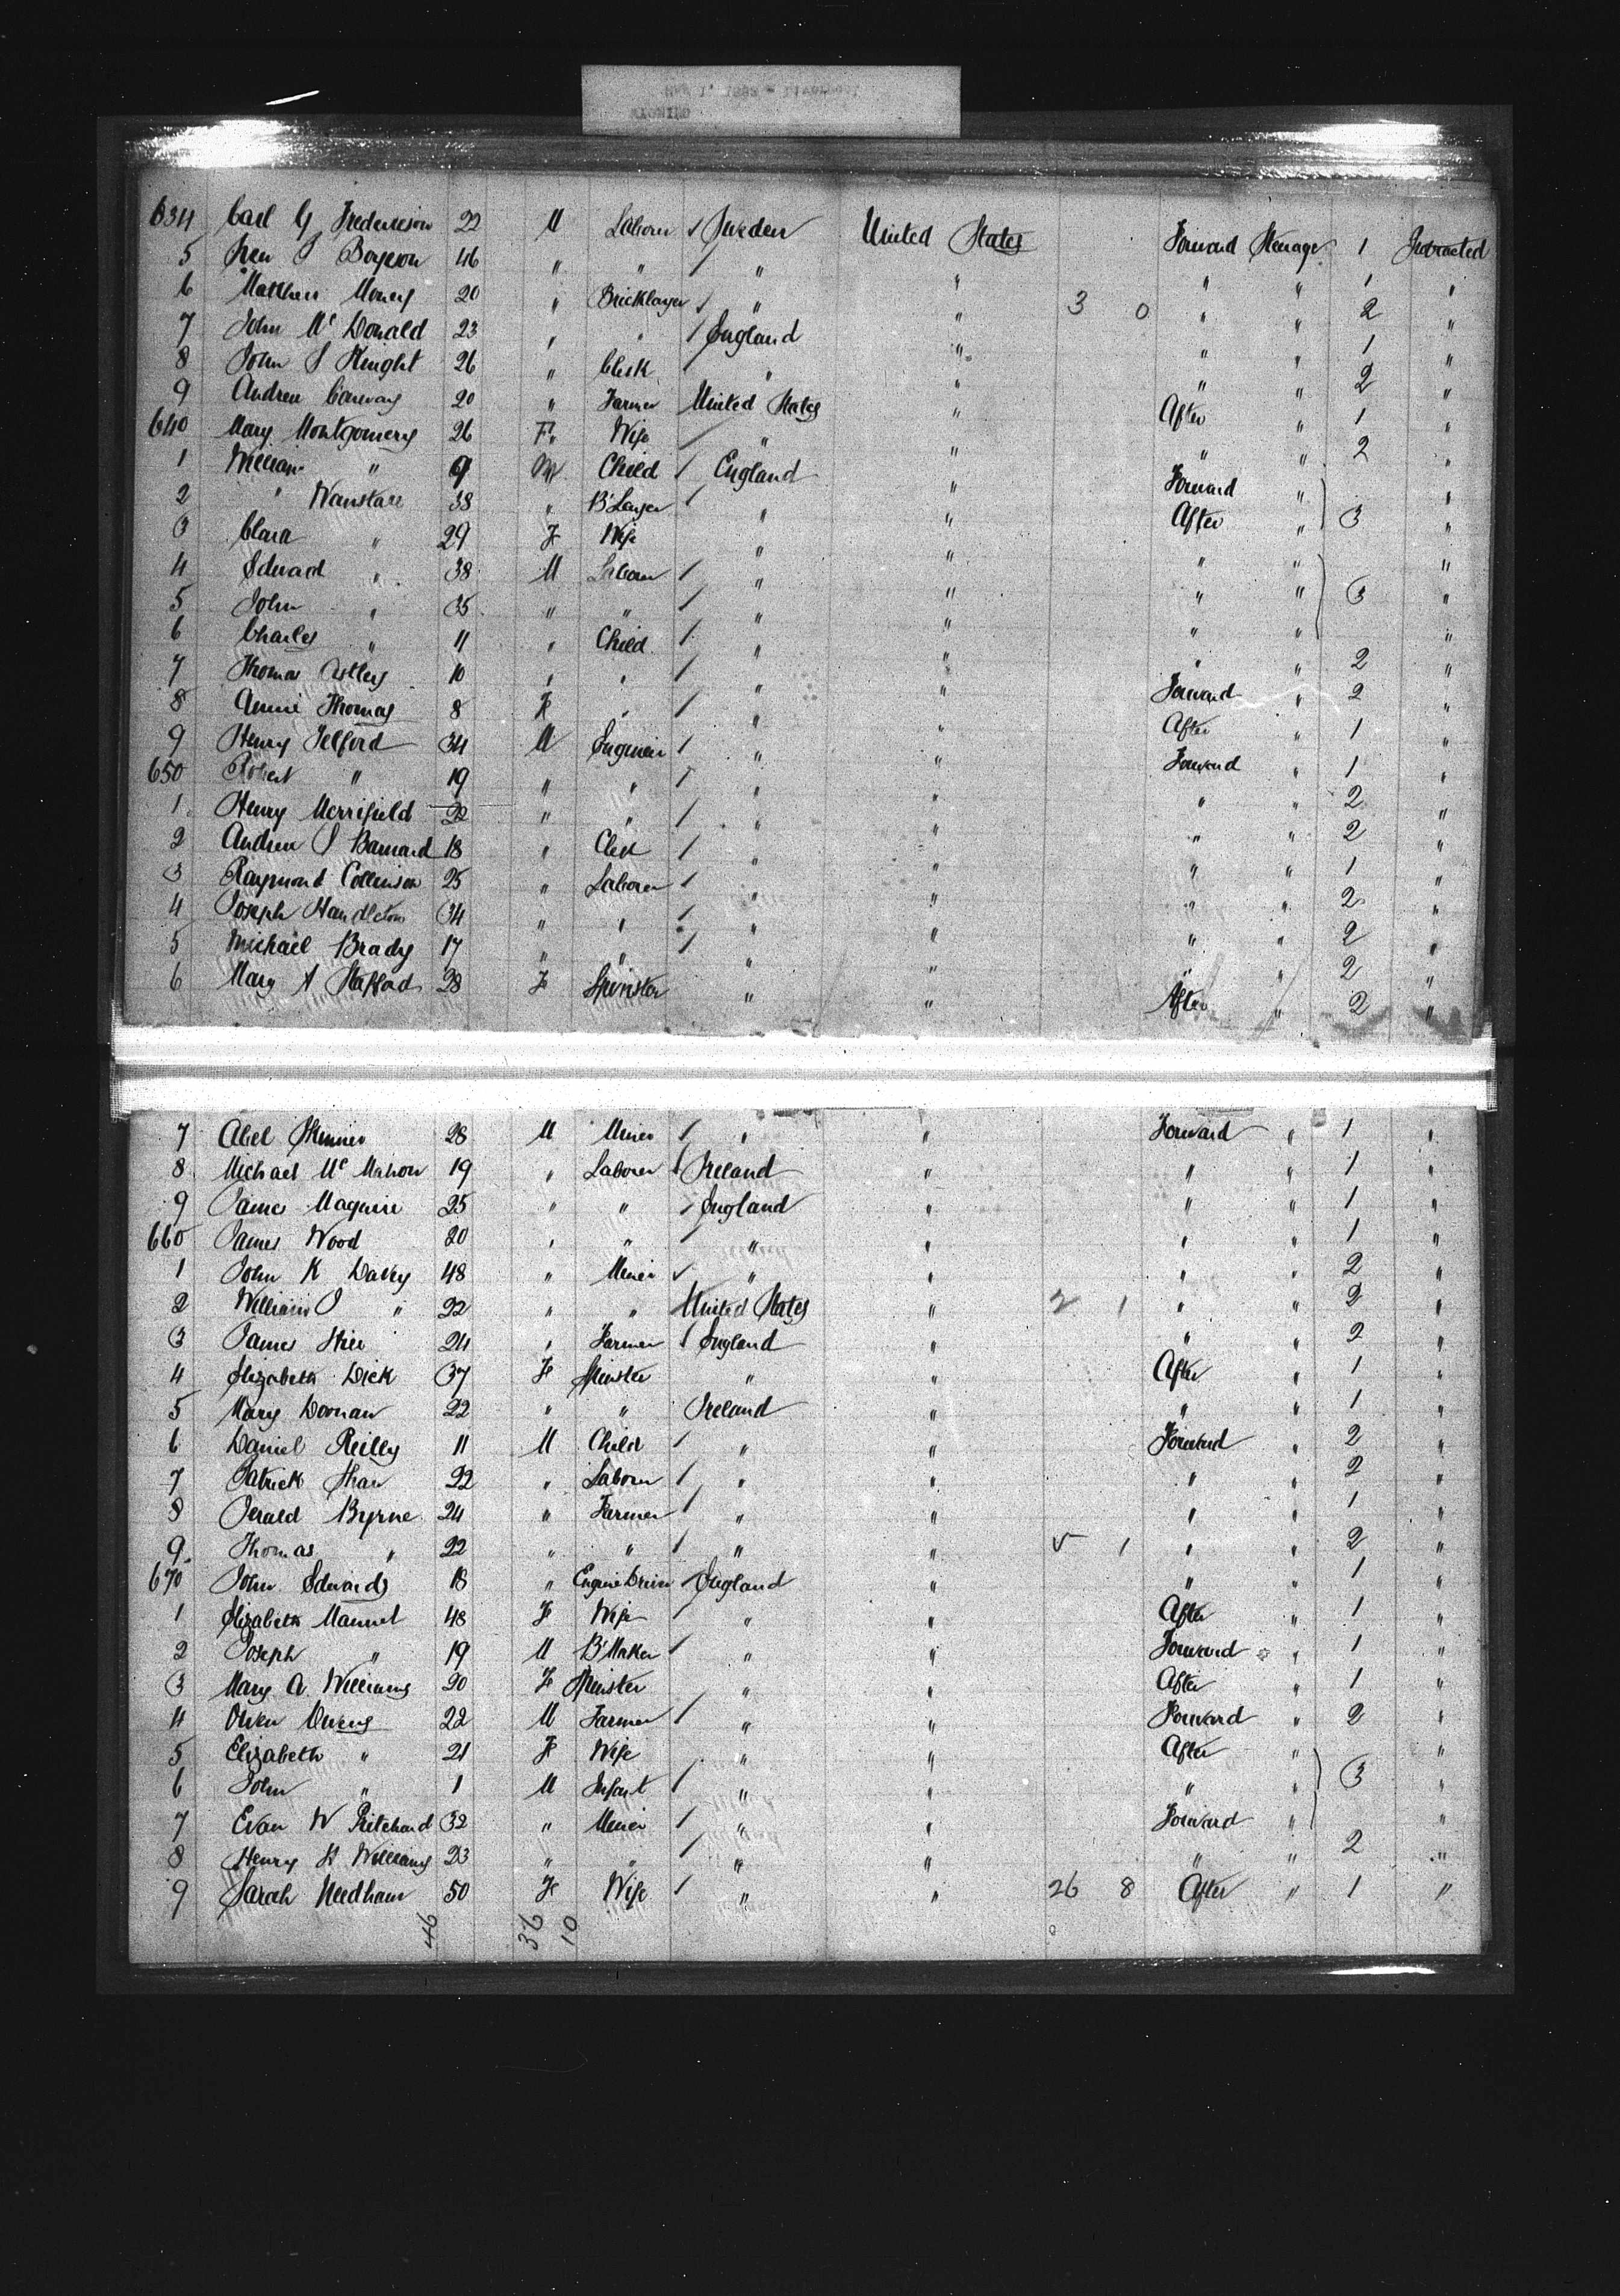 634 Carl G Frederickson 22 M Laborer / Sweden United States Forward Steerage 1 Protracted
5 Iven P Boyeson 46 " " / " " " " 1 "
6 Matthew Money 20 " Bricklayer / " " 3 0 " " 2 "
7 John Mc Donald 23 " " / England " " " 1 "
8 John S Knight 26 " Clerk / " " " " 2 "
9 Andrew Conway 20 " Farmer United States " After " 1 "
640 Mary Montgomery 26 F " Wife / " " " " 2 "
1 William " 9 M Child / England " Forward " "
2 " Wanstall 38 " B'Layer / " " After " 3 "
3 Clara " 29 F Wife " " " " "
4 Edward " 38 M Laborer / " " " " 3 "
5 John " 35 " " / " " " " "
6 Charles " 11 " Child / " " " " 2 "
7 Thomas Astley 10 " " / " " Forward " 2 "
8 Annie Thomas 8 F " / " " After " 1 "
9 Henry Telford 34 M Engineer / " " Forward " 1 "
650 Robert " 19 " " / " " " " 2 "
1 Henry Merrifield 22 " " / " " " " 2 "
2 Andrew S Barnard 18 " Clerk / " " " " 1 "
3 Raymond Collinson 25 " Laborer / " " " " 2 "
4 Joseph Handleton 34 " " / " " " " 2 "
5 Michael Brady 17 " " / " " " " 2 "
6 Mary A Stafford 28 F Spinster " " After " 2 "
7 Abel Skinner 28 M Miner / " " Forward " 1 "
8 Michael Mc Mahon 19 " Laborer / Ireland " " " 1 "
9 James Maguire 25 " " / England " " " 1 "
660 James Wood 20 " " / " " " " 1 "
1 John K Davey 48 " Miner ✓ " " " " 2 "
2 William J " 22 " " United States " 2 1 " " 2 "
3 James Hill 24 " Farmer / England " " " 2 "
4 Elizabeth Dick 37 F Spinster " " After " 1 "
5 Mary Doonan 22 " " Ireland " " " 1 "
6 Daniel Reilly 11 M Child / " " Forward " 2 "
7 Patrick Shaw 22 " Laborer / " " " " 2 "
8 Gerald Byrne 24 " Farmer / " " " " 1 "
9 Thomas " 22 " " / " " 5 1 " " 2 "
670 John Edwards 18 " Engine Driver / England " " " 1 "
1 Elizabeth Manuel 48 F Wife / " " After " 1 "
2 Joseph " 19 M B'Maker / " " Forward " 1 "
3 Mary A Williams 20 F Spinster " " After " 1 "
4 Owen Owens 22 M Farmer / " " Forward " 2 "
5 Elizabeth " 21 F Wife " " After " "
6 John " 1 M Infant / " " " " 3 "
7 Evan W Pritchard 32 " Miner / " " Forward " "
8 Henry H Williams 23 " " / " " " " 2 "
9 Sarah Needham 50 F Wife / " " 26 8 After " 1 "
46 36 10